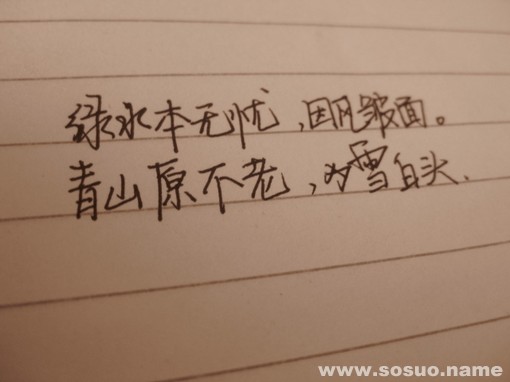 绿水本无忧,因风皱面。
青山原不老,为雪白头.
www.sosuo.name